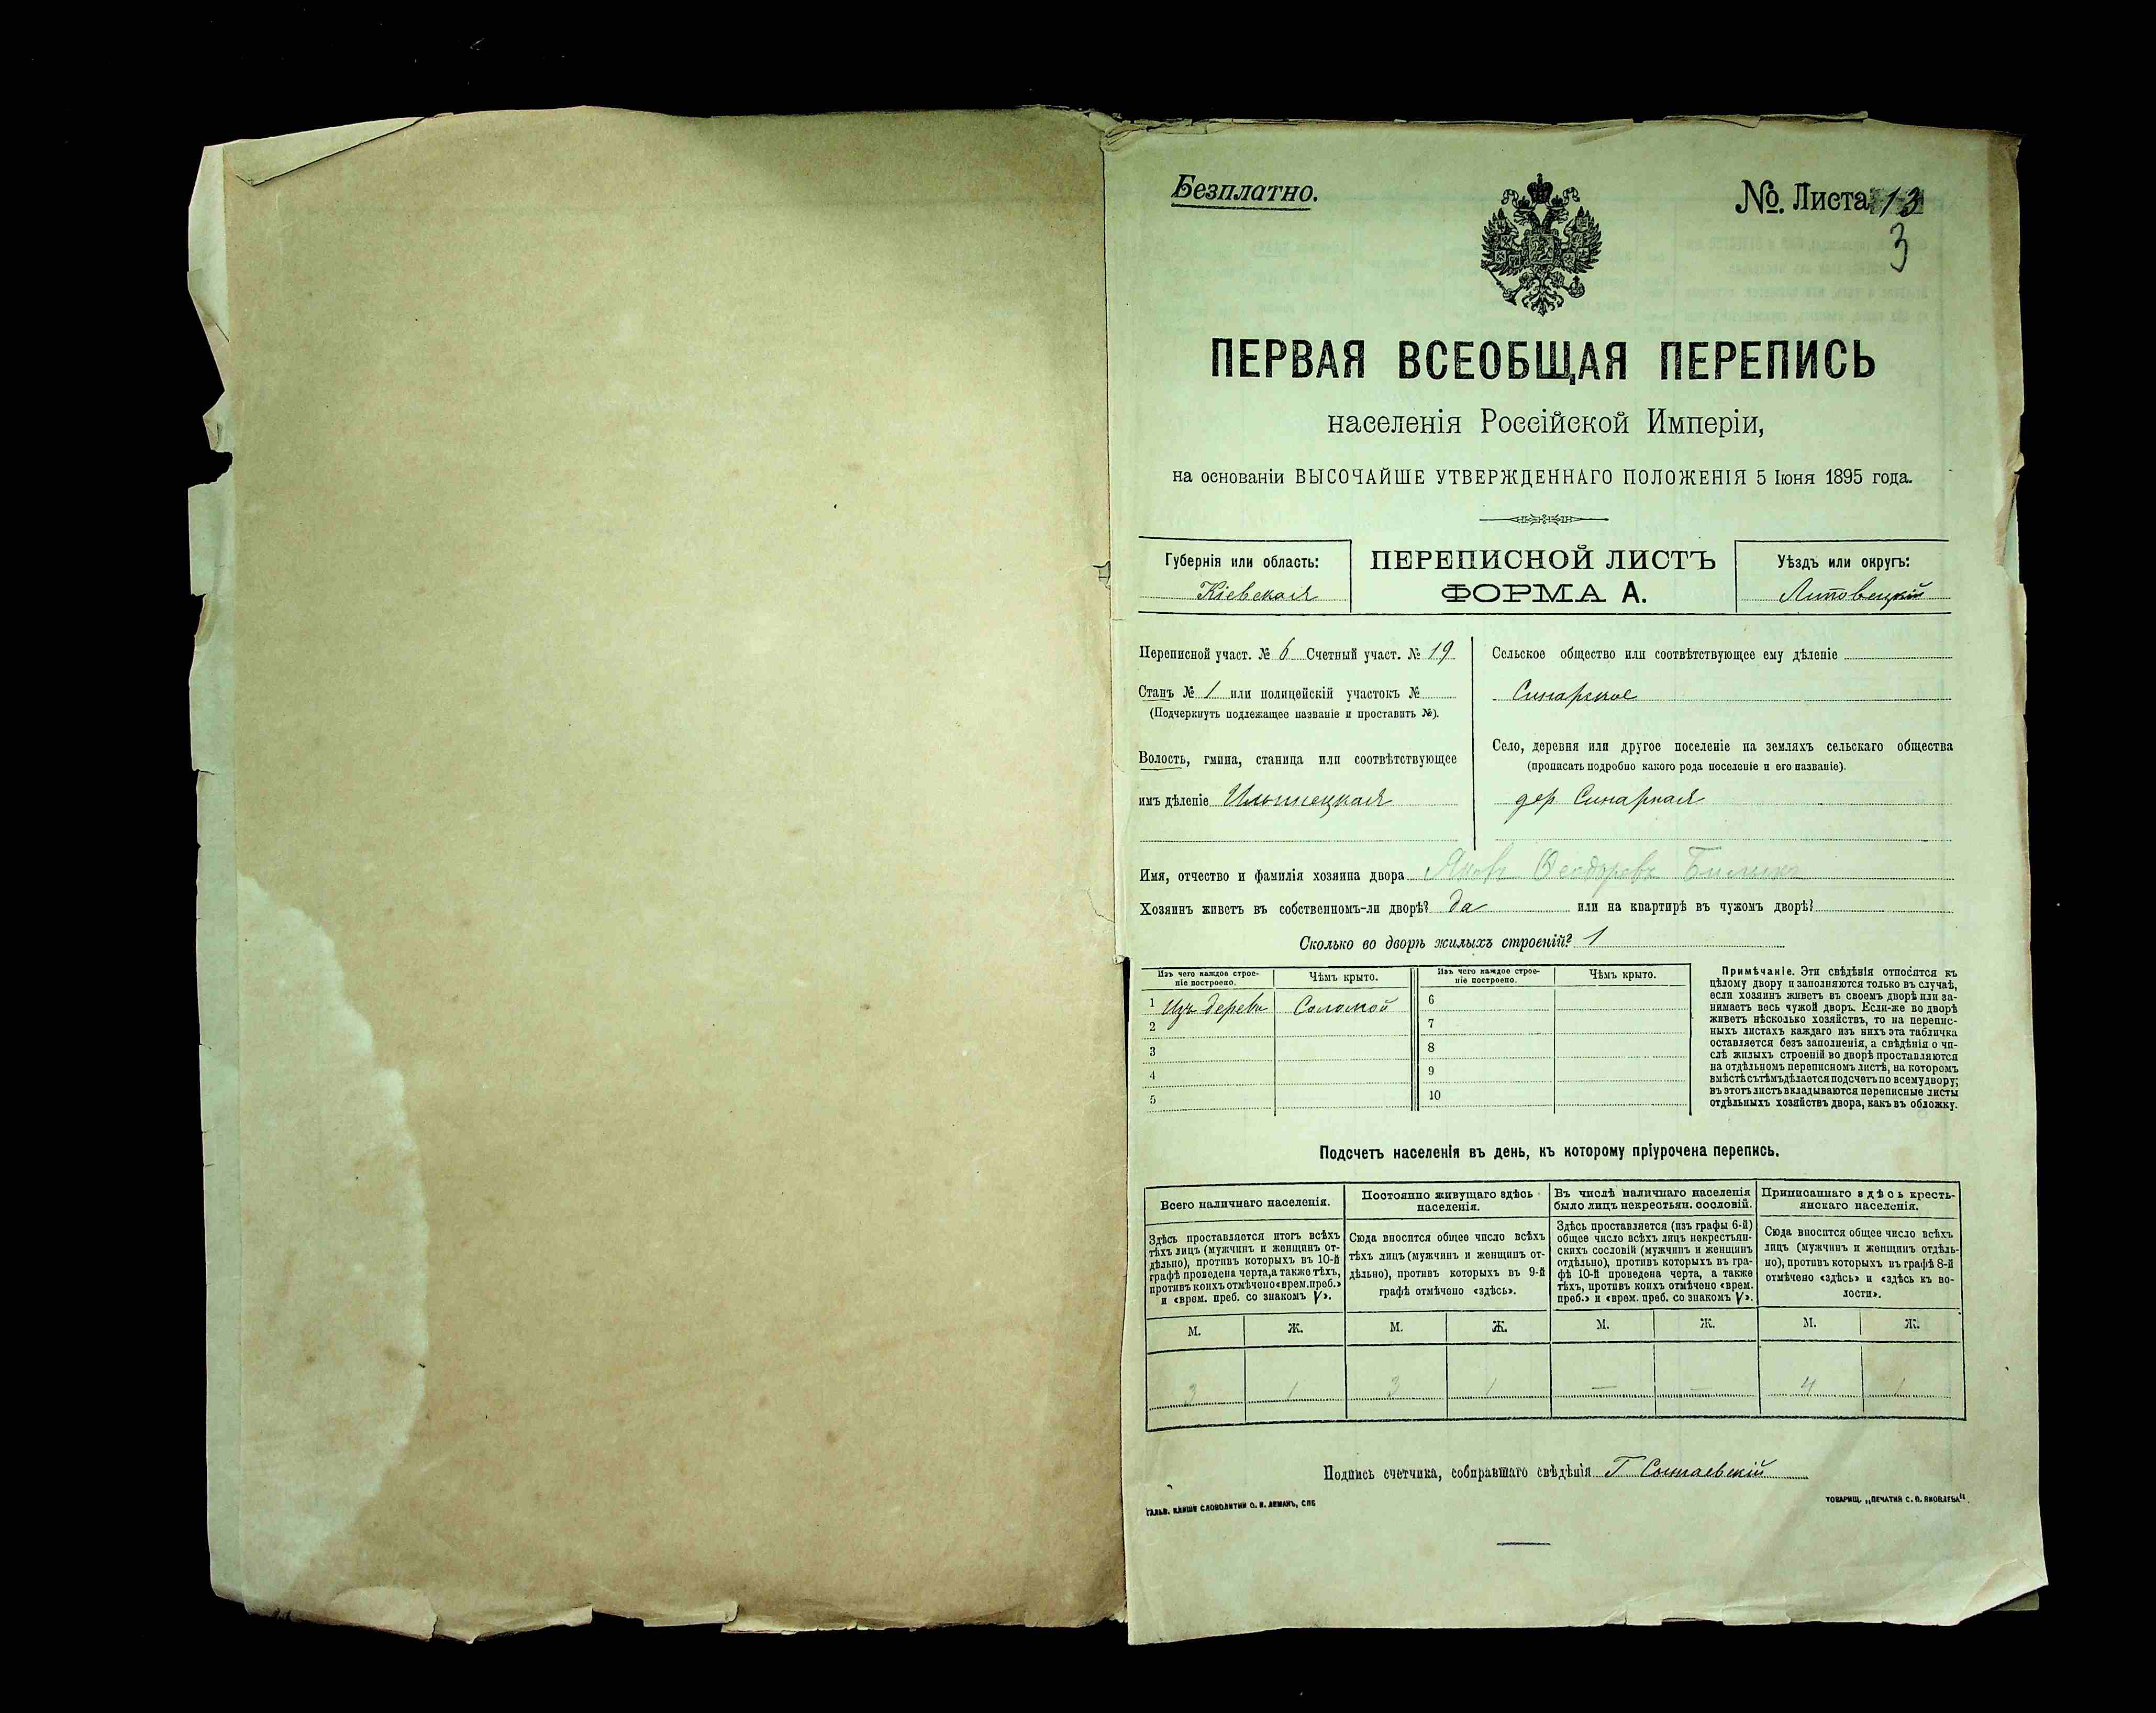 Безплатно.
№. Листа 13
3
ПЕРВАЯ ВСЕОБЩАЯ ПЕРЕПИСЬ
населенія Россійской Имперіи,
на основаніи ВЫСОЧАЙШЕ УТВЕРЖДЕННАГО ПОЛОЖЕНІЯ 5 Іюня 1895 года.
Губернія или область:
Кіевская
ПЕРЕПИСНОЙ ЛИСТЪ
ФОРМА А.
Уѣздъ или округъ:
Липовецкій
Переписной участ. № 6 Счетный участ. № 19
Станъ № 1 или полицейскій участокъ №
(Подчеркнуть подлежащее названіе и проставить №).
Волость, гмина, станица или соотвѣтствующее
имъ дѣленіе Ильинецкая
Сельское общество или соотвѣтствующее ему дѣленіе
Синарское
Село, деревня или другое поселеніе на земляхъ сельскаго общества
(прописать подробно какого рода поселеніе и его названіе).
дер Синарная
Имя, отчество и фамилія хозяина двора Яковъ Феодоровъ
Хозяинъ живетъ въ собственномъ-ли дворѣ? да или на квартирѣ въ чужомъ дворѣ?
Сколько во дворѣ жилыхъ строеній? 1
Изъ чего каждое строе-
ніе построено.
Чѣмъ крыто.
Изъ чего каждое строе-
ніе построено.
Чѣмъ крыто.
1 Изъ дерева Соломой 6
2 7
3 8
4 9
5 10
Примѣчаніе. Эти свѣдѣнія относятся къ
цѣлому двору и заполняются только въ случаѣ,
если хозяинъ живетъ въ своемъ дворѣ или за-
нимаетъ весь чужой дворъ. Если-же во дворѣ
живетъ нѣсколько хозяйствъ, то на перепис-
ныхъ листахъ каждаго изъ нихъ эта табличка
оставляется безъ заполненія, а свѣдѣнія о чи-
слѣ жилыхъ строеній во дворѣ проставляются
на отдѣльномъ переписномъ листѣ, на которомъ
вмѣстѣ съ тѣмъ дѣлается подсчетъ по всему двору;
въ этотъ листъ вкладываются переписные листы
отдѣльныхъ хозяйствъ двора, какъ въ обложку.
Подсчетъ населенія въ день, къ которому пріурочена перепись.
Всего наличнаго населенія.
Здѣсь проставляется итогъ всѣхъ
тѣхъ лицъ (мужчинъ и женщинъ от-
дѣльно), противъ которыхъ въ 10-й
графѣ проведена черта, а также тѣхъ,
противъ коихъ отмѣчено «врем. преб.»
и «врем. преб. со знакомъ V».
Постоянно живущаго здѣсь
населенія.
Сюда вносится общее число всѣхъ
тѣхъ лицъ (мужчинъ и женщинъ от-
дѣльно), противъ которыхъ въ 9-й
графѣ отмѣчено «здѣсь».
Въ числѣ наличнаго населенія
было лицъ некрестьян. сословій.
Здѣсь проставляется (изъ графы 6-й)
общее число всѣхъ лицъ некрестьян-
скихъ сословій (мужчинъ и женщинъ
отдѣльно), противъ которыхъ въ гра-
фѣ 10-й проведена черта, а также
тѣхъ, противъ коихъ отмѣчено «врем.
преб.» и «врем. преб. со знакомъ V».
Приписаннаго здѣсь кресть-
янскаго населенія.
Сюда вносится общее число всѣхъ
лицъ (мужчинъ и женщинъ отдѣль-
но), противъ которыхъ въ графѣ 8-й
отмѣчено «здѣсь» и «здѣсь къ во-
лости».
М. Ж. М. Ж. М. Ж. М. Ж.
3 1 3 1 — — 4 1
Подпись счетчика, собиравшаго свѣдѣнія Г
ГАЛЬВ. КЛИШЕ СЛОВОЛИТНИ О. И. ЛЕМАНЪ, СПБ
ТОВАРИЩ. „ПЕЧАТНЯ С. П. ЯКОВЛЕВА“.